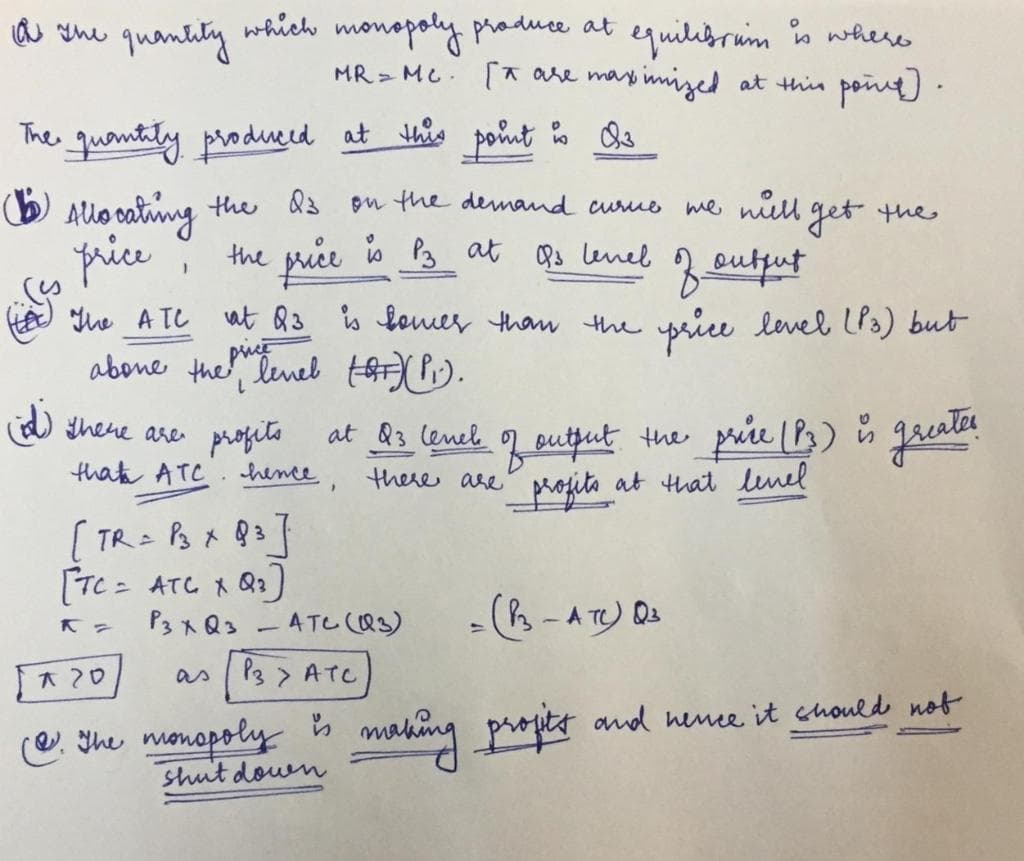 (a) The quantity which monopoly produce at equilibrium is where
MR = MC. [π are maximized at this point].
The quantity produced at this point is Q3
(b) Allocating the Q3 on the demand curve we will get the
price, the price is P3 at Q3 level of output
(c) The ATC at Q3 is lower than the price level (P3) but
above the price level (P1).
(d) There are profits at Q3 level of output the price (P3) is greater
that ATC. hence, there are profits at that level
[TR = P3 x Q3]
[TC = ATC x Q3]
π = P3 x Q3 - ATC (Q3) = (P3 - ATC) Q3
π > 0 as P3 > ATC
(e). The monopoly is making profits and hence it should not
shut down